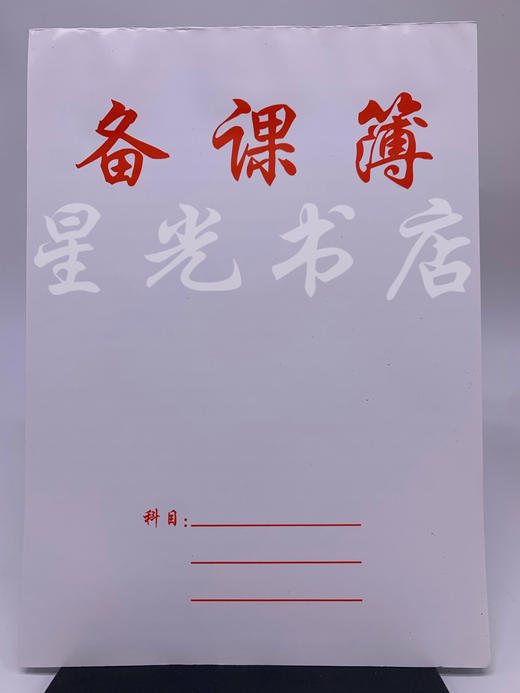 备课簿
星光书店
科目: